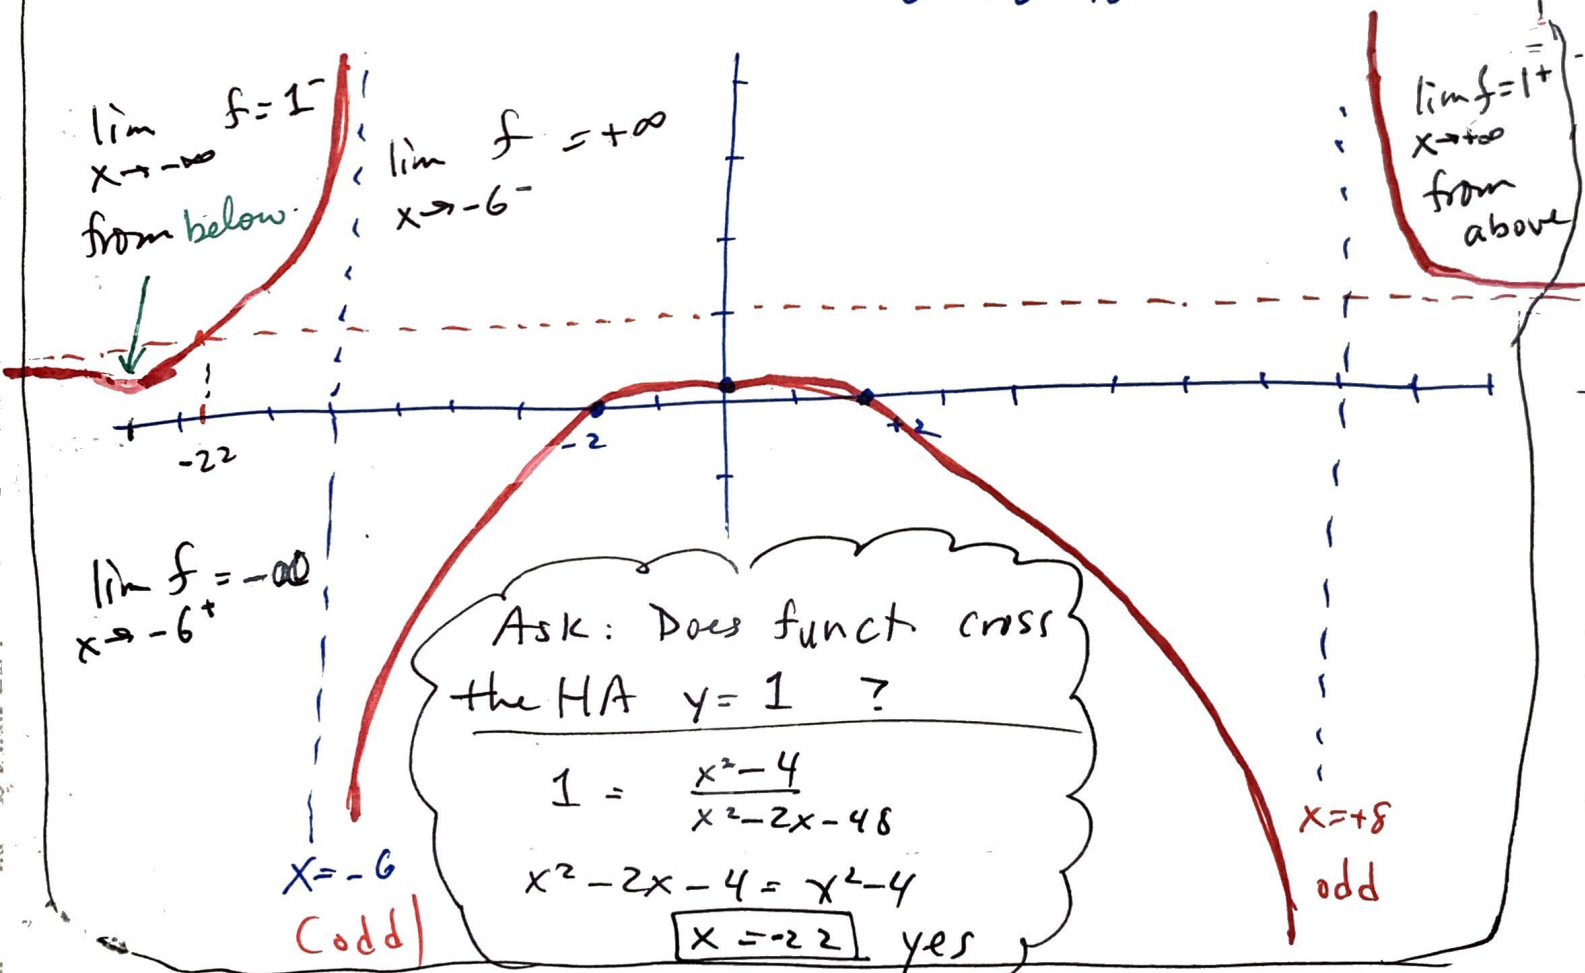 lim f = 1⁻
x→-∞
from below.
lim f = +∞
x→-6⁻
lim f = 1⁺
x→+∞
from
above
-22
-2
+2
lim f = -∞
x→-6⁺
Ask: Does funct cross
the HA y = 1 ?
1 = x²-4
x²-2x-48
x²-2x-4 = x²-4
x = -22 yes
x = -6
Codd
x = +8
odd